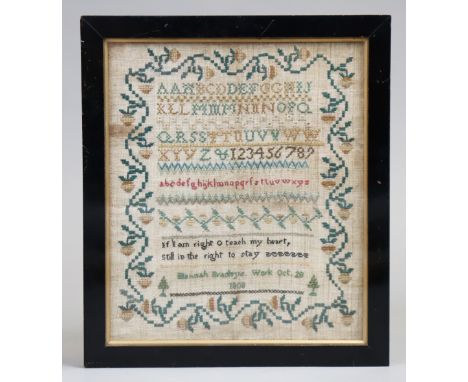 AAABCDDEFGGHIJ
KLLMMMNNNOPQ
QRSSTTUUVVWW
XYYZ&123456789
abcdefghijklmnopqrſsttuvwxyz
If I am right O teach my heart,
Still in the right to stay
Hannah Work Oct. 29
1808